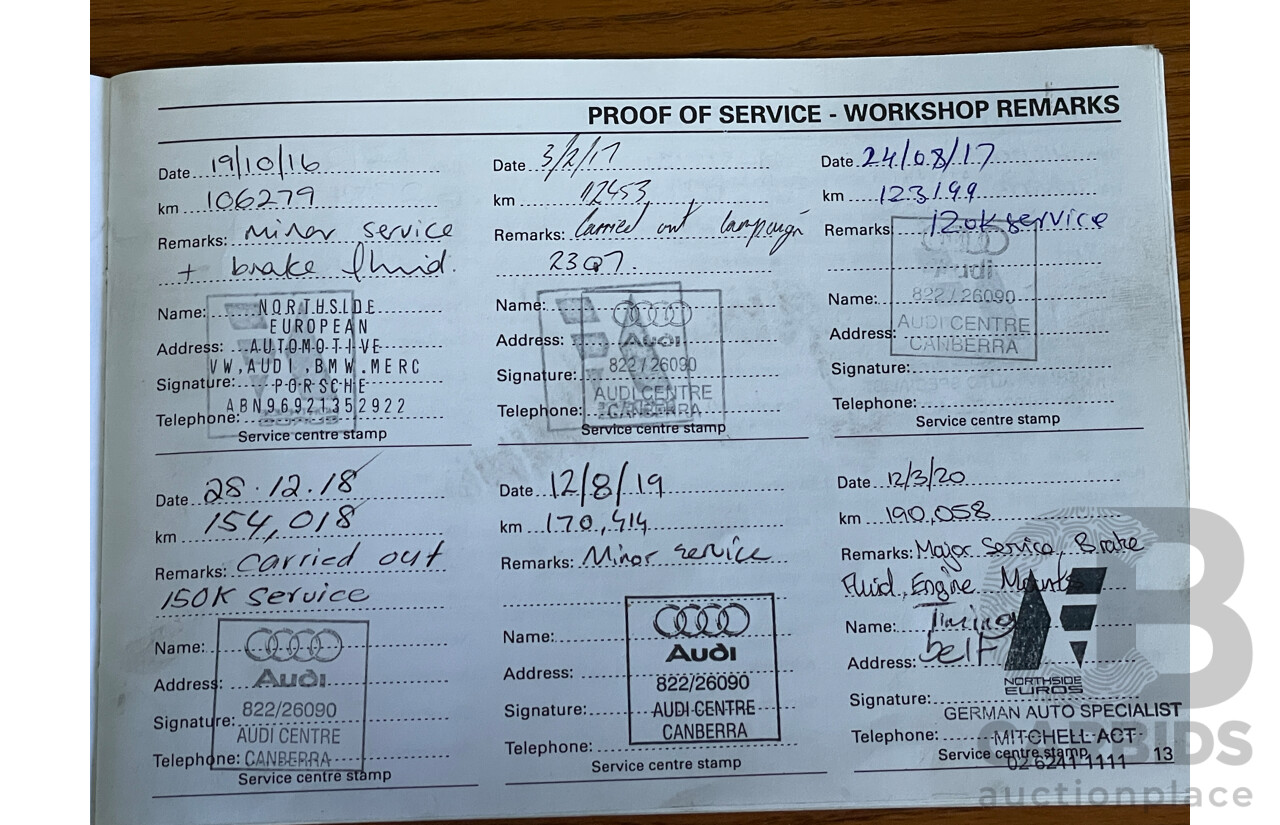 PROOF OF SERVICE - WORKSHOP REMARKS
Date 19/10/16
km 106279
Remarks: Minor service
+ brake fluid.
Name: NORTHSIDE
EUROPEAN
Address: AUTOMOTIVE
VW, AUDI, BMW. MERC
Signature: PORSCHE
ABN96921352922
Telephone:
Service centre stamp
Date 3/2/17
km 112453
Remarks: Carried out campaign
23Q7.
Name:
Address: Audi
Signature: 822/26090
AUDI CENTRE
Telephone: CANBERRA
Service centre stamp
Date 24/08/17
km 123199
Remarks: 120K service
Audi
Name: 822/26090
Address: AUDI CENTRE
CANBERRA
Signature:
Telephone:
Service centre stamp
Date 28.12.18
km 154,018
Remarks: Carried out
150K Service
Name:
Address: Audi
822/26090
Signature: AUDI CENTRE
Telephone: CANBERRA
Service centre stamp
Date 12/8/19
km 170,414
Remarks: Minor service
Name:
Audi
Address: 822/26090
Signature: AUDI CENTRE
CANBERRA
Telephone:
Service centre stamp
Date 12/3/20
km 190,058
Remarks: Major Service, Brake
Fluid, Engine Mounts
Name: Timing
Address: belt
NORTHSIDE
EUROS
Signature:
GERMAN AUTO SPECIALIST
Telephone: MITCHELL ACT
Service centre stamp
02 6241 1111
13
ALLBIDS
auctionplace